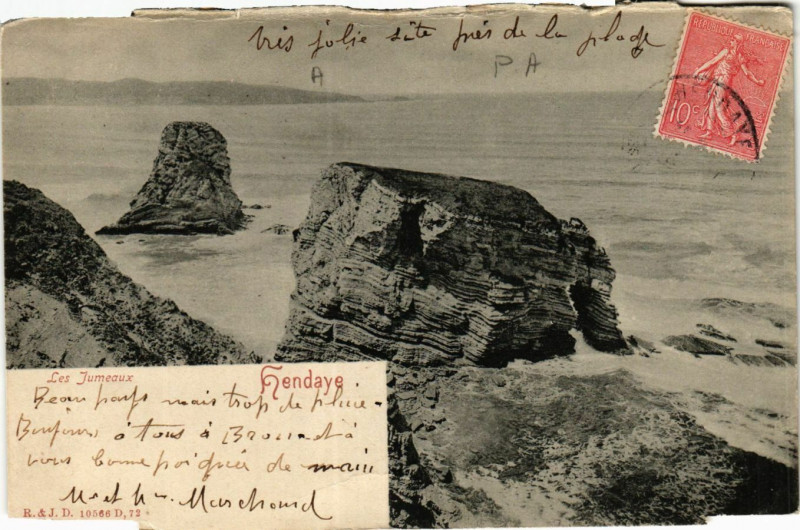 très jolie site près de la plage
A PA
REPUBLIQUE FRANÇAISE
10c
HENDAYE
Les Jumeaux Hendaye
Beau pays mais trop de pluie -
Bonjour à tous à et à
vous bonne poignée de main
Mr et Mme Marchand
R. & J. D. 10566 D, 72